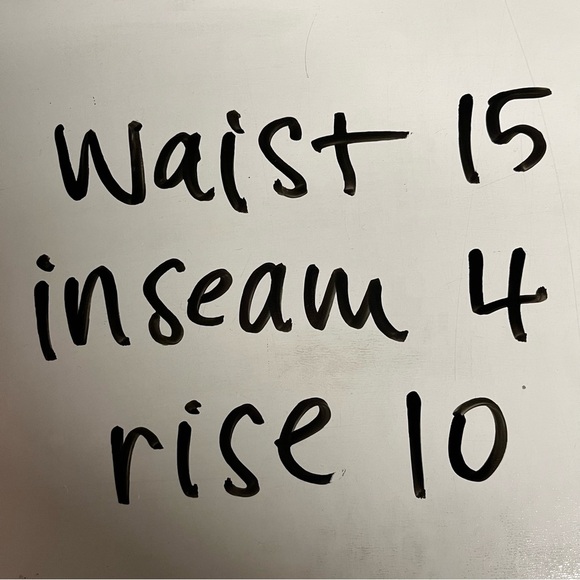 waist 15
inseam 4
rise 10